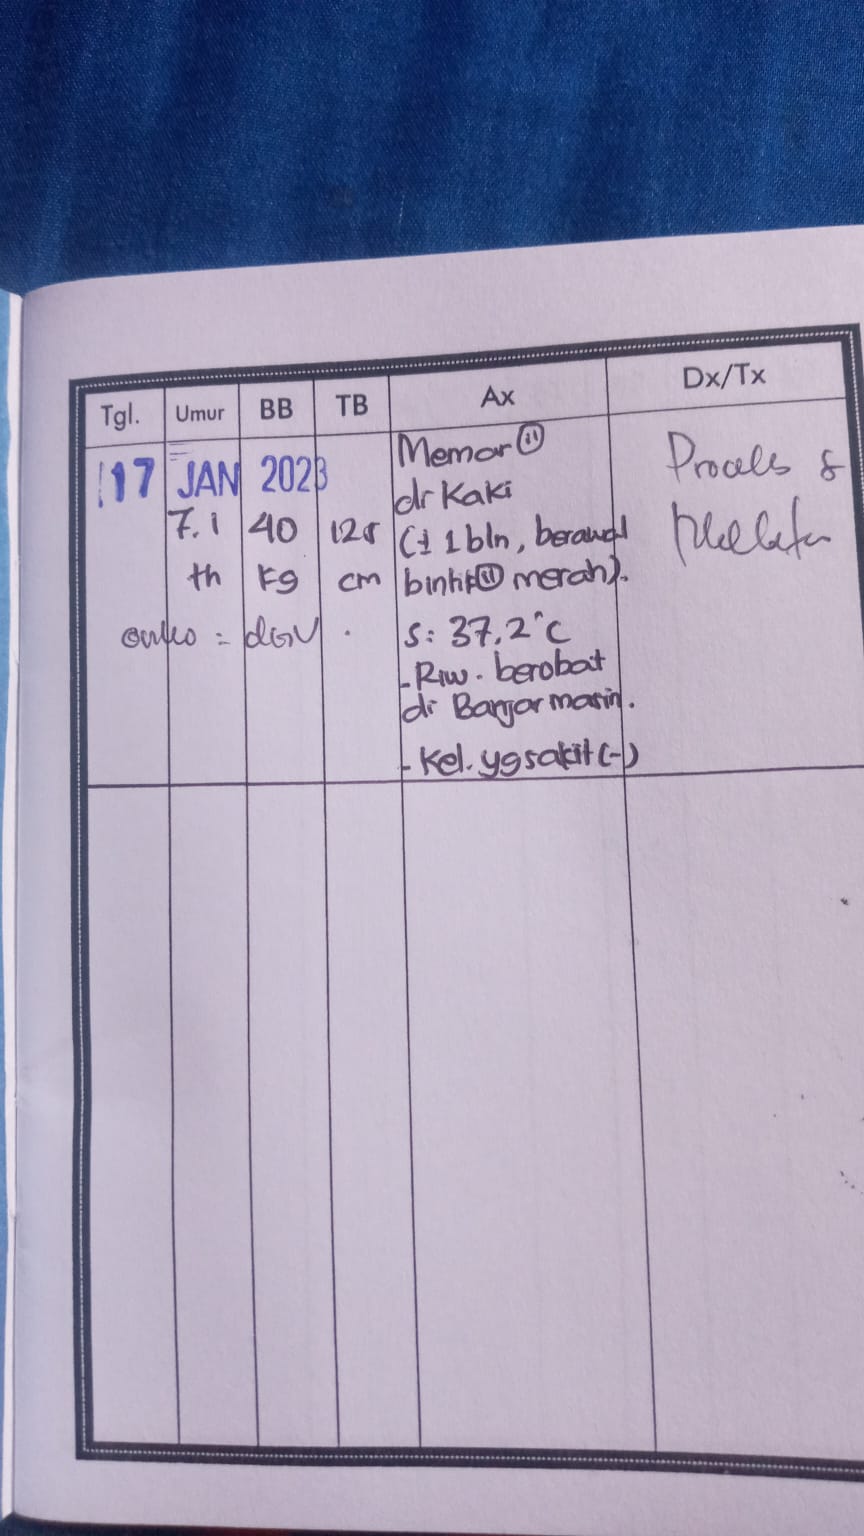 Tgl. Umur BB TB Ax Dx/Tx
17 JAN 2023
7.1 th
40 kg
125 cm
Memar (11)
dr Kaki
(± 1 bln, berawal
bintik (11) merah).
S: 37,2°C
- Riw. berobat
di Banjarmasin.
- Kel. yg sakit (-)